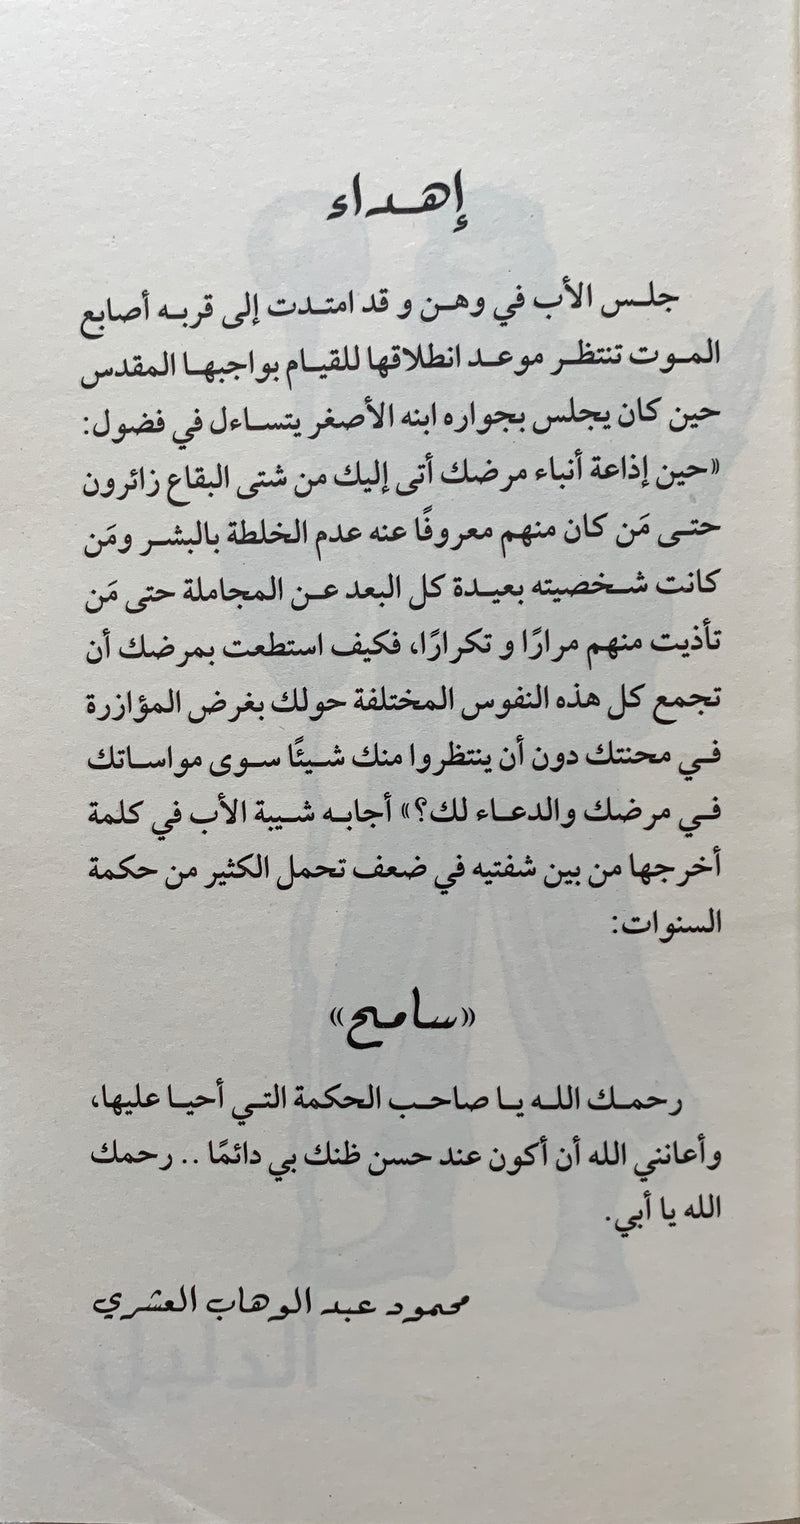 إهداء
جلس الأب في وهن و قد امتدت إلى قربه أصابع
الموت تنتظر موعد انطلاقها للقيام بواجبها المقدس
حين كان يجلس بجواره ابنه الأصغر يتساءل في فضول:
«حين إذاعة أنباء مرضك أتى إليك من شتى البقاع زائرون
حتى مَن كان منهم معروفًا عنه عدم الخلطة بالبشر ومَن
كانت شخصيته بعيدة كل البعد عن المجاملة حتى مَن
تأذيت منهم مرارًا و تكرارًا، فكيف استطعت بمرضك أن
تجمع كل هذه النفوس المختلفة حولك بغرض المؤازرة
في محنتك دون أن ينتظروا منك شيئًا سوى مواساتك
في مرضك والدعاء لك؟» أجابه شيبة الأب في كلمة
أخرجها من بين شفتيه في ضعف تحمل الكثير من حكمة
السنوات:
«سامح»
رحمك الله يا صاحب الحكمة التي أحيا عليها،
وأعانني الله أن أكون عند حسن ظنك بي دائمًا .. رحمك
الله يا أبي.
محمود عبد الوهاب العشري
الدليل